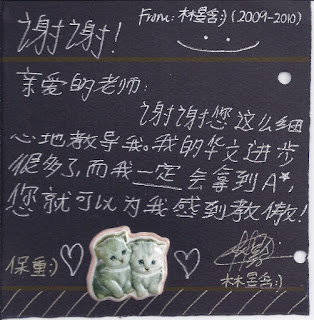 From: 林晏杏:) (2009-2010)
谢谢!
亲爱的老师:
谢谢您这么细
心地教导我。我的华文进步
很多了,而我一定会拿到A*,
您就可以为我感到教傲!
保重:)
林晏杏:)